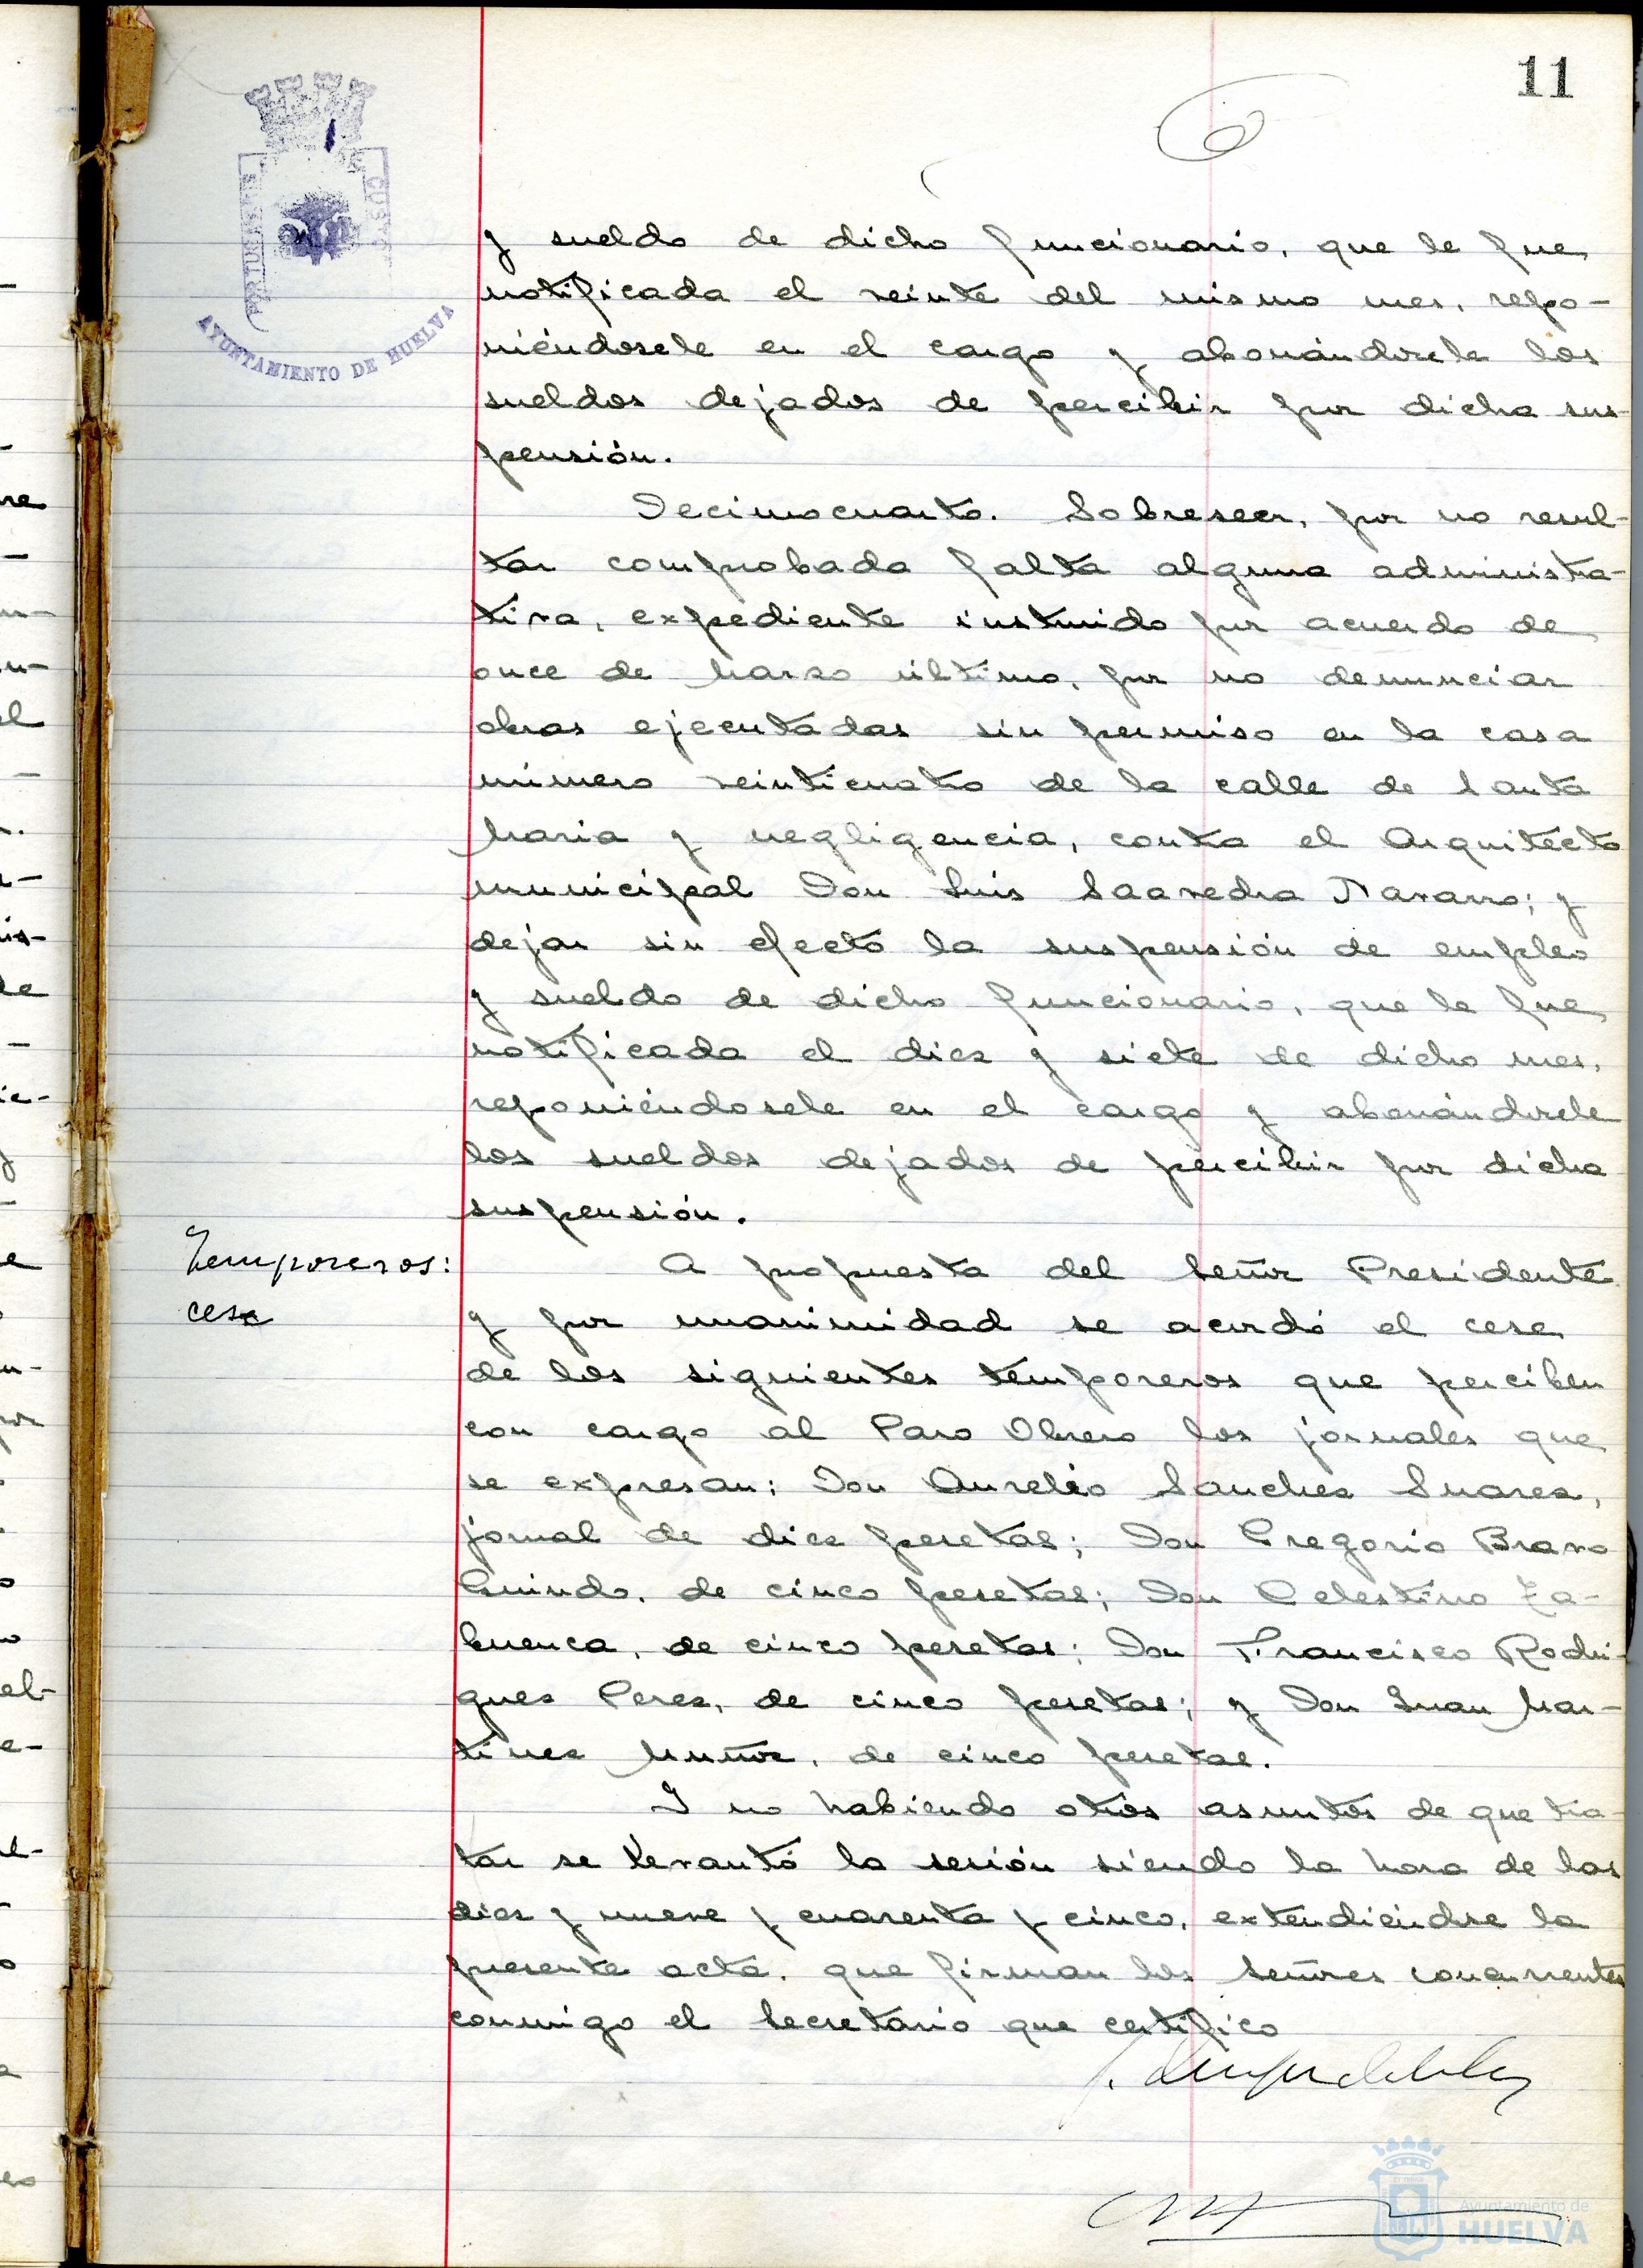 11
PORTUS MARIS
CUSTODIA
AYUNTAMIENTO DE HUELVA
y sueldo de dicho funcionario, que le fue
notificada el veinte del mismo mes, repo-
niéndosele en el cargo y abonándosele los
sueldos dejados de percibir por dicha sus-
pensión.
Decimocuarto. Sobreseer, por no resul-
tar comprobada falta alguna administra-
tiva, expediente instruido por acuerdo de
once de Marzo último, por no denunciar
obras ejecutadas sin permiso en la casa
número veinticuatro de la calle de Santa
Maria y negligencia, contra el Arquitecto
municipal Don Luis Saavedra Navarro; y
dejar sin efecto la suspensión de empleo
y sueldo de dicho funcionario, que le fue
notificada el diez y siete de dicho mes,
reponiéndosele en el cargo y abonándosele
los sueldos dejados de percibir por dicha
suspensión.
Temporeros:
cese
A propuesta del Señor Presidente
y por unanimidad se acordó el cese
de los siguientes temporeros que perciben
con cargo al Paro Obrero los jornales que
se expresan: Don Aurelio Sanchez Suarez,
jornal de diez pesetas; Don Gregorio Bravo
Guindo, de cinco pesetas; Don Celestino Za-
buenca, de cinco pesetas; Don Francisco Rodri-
guez Perez, de cinco pesetas; y Don Juan Mar-
tinez Muñoz, de cinco pesetas.
Y no habiendo otros asuntos de que tra-
tar se levantó la sesión siendo la hora de las
diez y nueve y cuarenta y cinco, extendiéndose la
presente acta, que firman los señores concurrentes
conmigo el Secretario que certifico
Ayuntamiento de
HUELVA